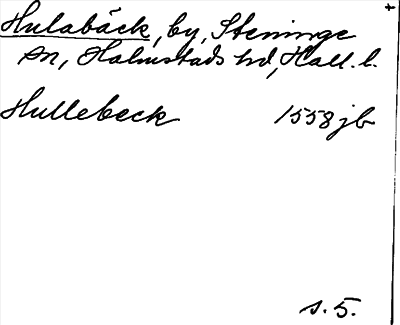 Hulabäck, by, Steninge
sn, Halmstads hd, Hall. l.
Hullebeck 1558 jb
s. 5.